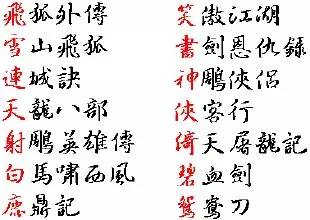 飛狐外傳
雪山飛狐
連城訣
天龍八部
射鵰英雄傳
白馬嘯西風
鹿鼎記
笑傲江湖
書劍恩仇錄
神鵰俠侶
俠客行
倚天屠龍記
碧血劍
鴛鴦刀